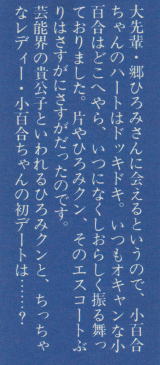 大先輩・郷ひろみさんに会えるというので、小百合
ちゃんのハートはドッキドキ。いつもオキャンな小
百合はどこへやら、いつになくしおらしく振る舞っ
ておりました。片やひろみクン、そのエスコートぶ
りはさすがにさすがだったのです。
芸能界の貴公子といわれるひろみクンと、ちっちゃ
なレディー・小百合ちゃんの初デートは……？